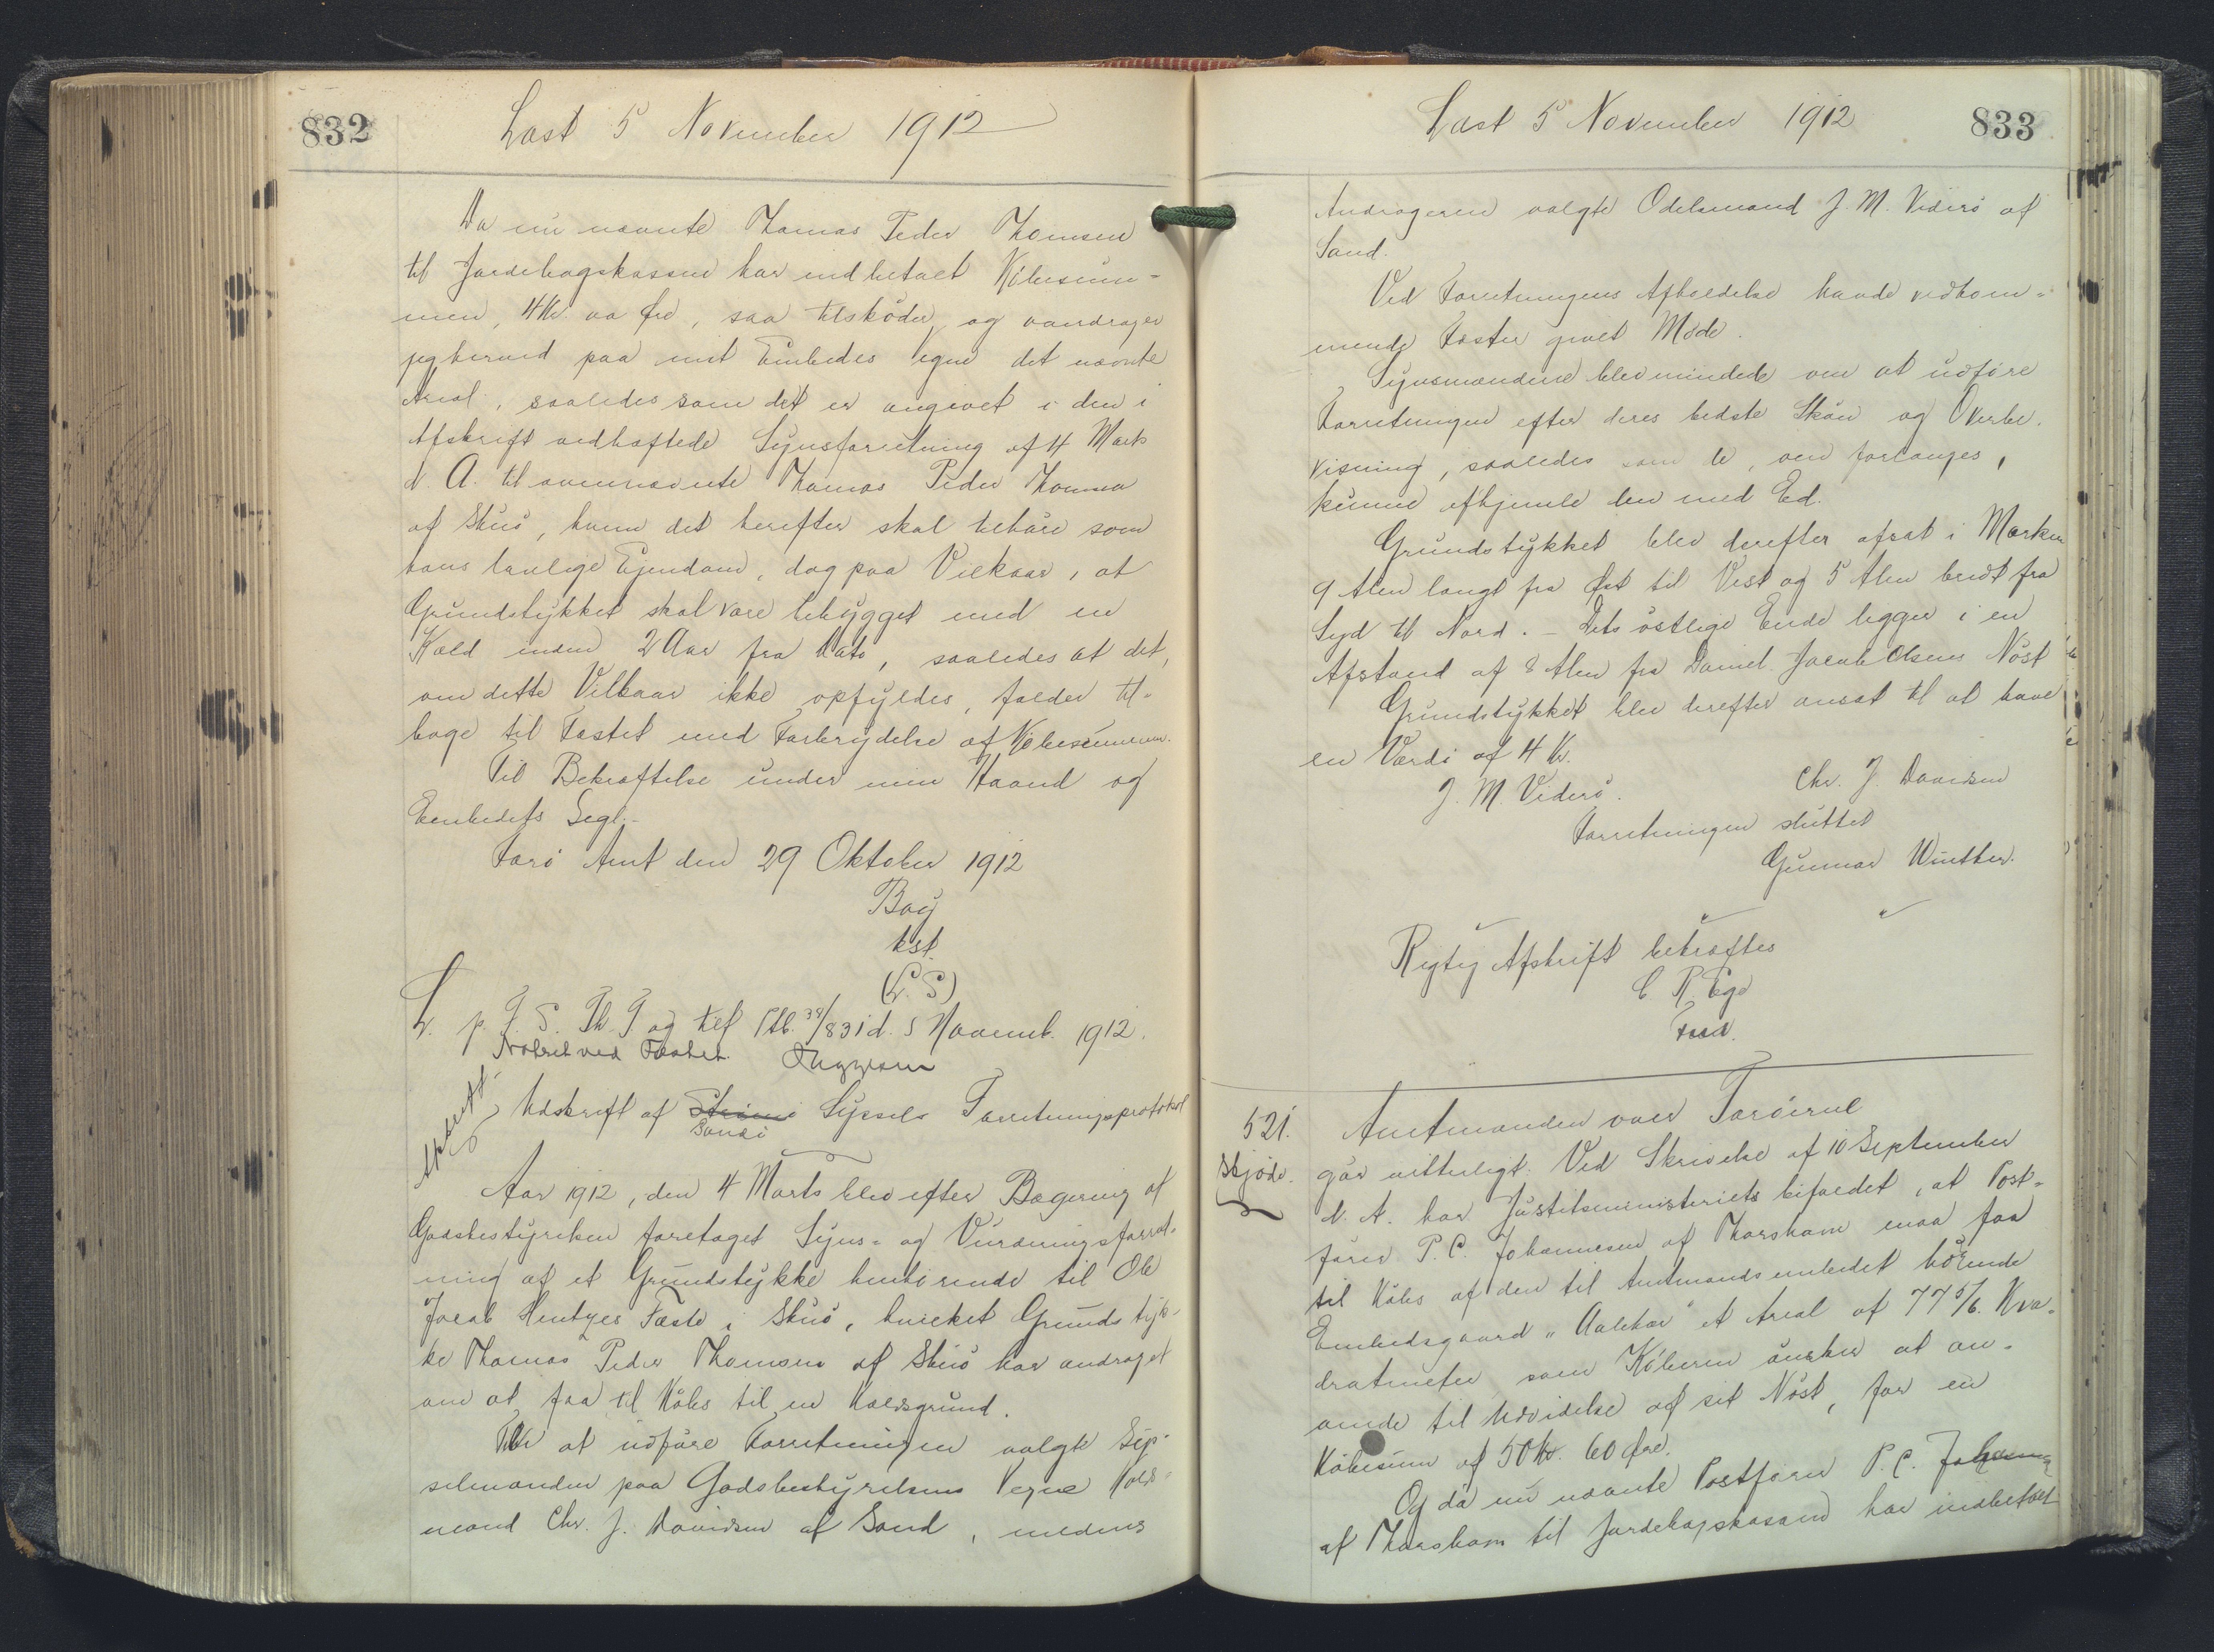 832
Læst 5 November 1912
Da nu nævnte Thomas Peder Thomsen
til Jordebogskassen har indbetalt Købesum-
men, 4 Kr. oo Øre, saa tilskøder og overdrager
jeg herved paa mit Embedes Vegne det nævnte
Areal, saaledes som det er angivet i den i
Afskrift vedhæftede Synsforretning af 4 Marts
d. A. til ovennævnte Thomas Peder Thomsen
af Skuö, hvem det herefter skal tilhöre som
hans lovlige Ejendom, dog paa Vilkaar, at
Grundstykket skal være bebygget med en
Kæld inden 2 Aar fra Dato, saaledes at det,
om dette Vilkaar ikke opfyldes, falder til-
bage til Fæstet med Forbrydelse af Købesummen.
Til Bekræftelse under min Haand og
Embedets Segl.-
Färö Amt den 29 Oktober 1912
Bay
kst.
(L. S)
L. p. F. S. Th. T. og tilf Ptb. 38/831 d. 5 Novemb. 1912.
Noteret ved Fæstet.
Afskrift
Udskrift af Strömö Syssels Forretningsprotokol
Sandö
Aar 1912, den 4 Marts blev efter Begæring af
Godsbestyrelsen foretaget Syns- og Vurderingsforret-
ning af et Grundstykke henhörende til Ole
Jacob Hentzes Fæste i Skuö, hvilket Grundstyk-
ke Thomas Peder Thomsen af Skuö har andraget
om at faa til Købs til en Kældsgrund.
Til at udföre Forretningen valgte Sys-
selmanden paa Godsbestyrelsens Vegne Kold-
mand Chr. J. Davidsen af Sand, medens
Læst 5 November 1912
833
Andrageren valgte Odelsmand J. M. Viderö af
Sand.
Ved Forretningens Afholdelse havde vedkom-
mende Fæster givet Möde.
Synsmændene blev mindede om at udføre
Forretningen efter deres bedste Skön og Overbe-
visning, saaledes som de, om forlanges,
kunne afhjemle den med Ed.
Grundstykket blev derefter afsat i Marken
9 Alen langt fra Øst til Vest og 5 Alen bredt fra
Syd til Nord. - Dets östlige Ende ligger i en
Afstand af 8 Alen fra Daniel Jacob Olsens Nöst
Grundstykket blev derefter ansat til at have
en Værdi af 4 Kr.
J. M. Viderö. Chr. J. Davidsen
Forretningen sluttet
Gunnar Winther.
Rigtig Afskrift bekræftes
C R Ege
Fuld.
521. Amtmanden over Færöerne
Skjöde. gör vitterligt: Ved Skrivelse af 10 September
d. A. har Justitsministeriets bifaldet, at Post-
förer P. C. Johannesen af Thorshavn maa faa
til Købs af den til Amtmandsembedet hörende
Embedsgaard "Aalekær" et Areal af 77 5/6. Kva-
dratmeter, som Köberen önsker at an-
vende til Udvidelse af sit Nöst, for en
Købesum af 50 Kr. 60 Øre.
Og da nu nævnte Postförer P. C. Johannesen
af Thorshavn til Jordebogskassen har indbetalt